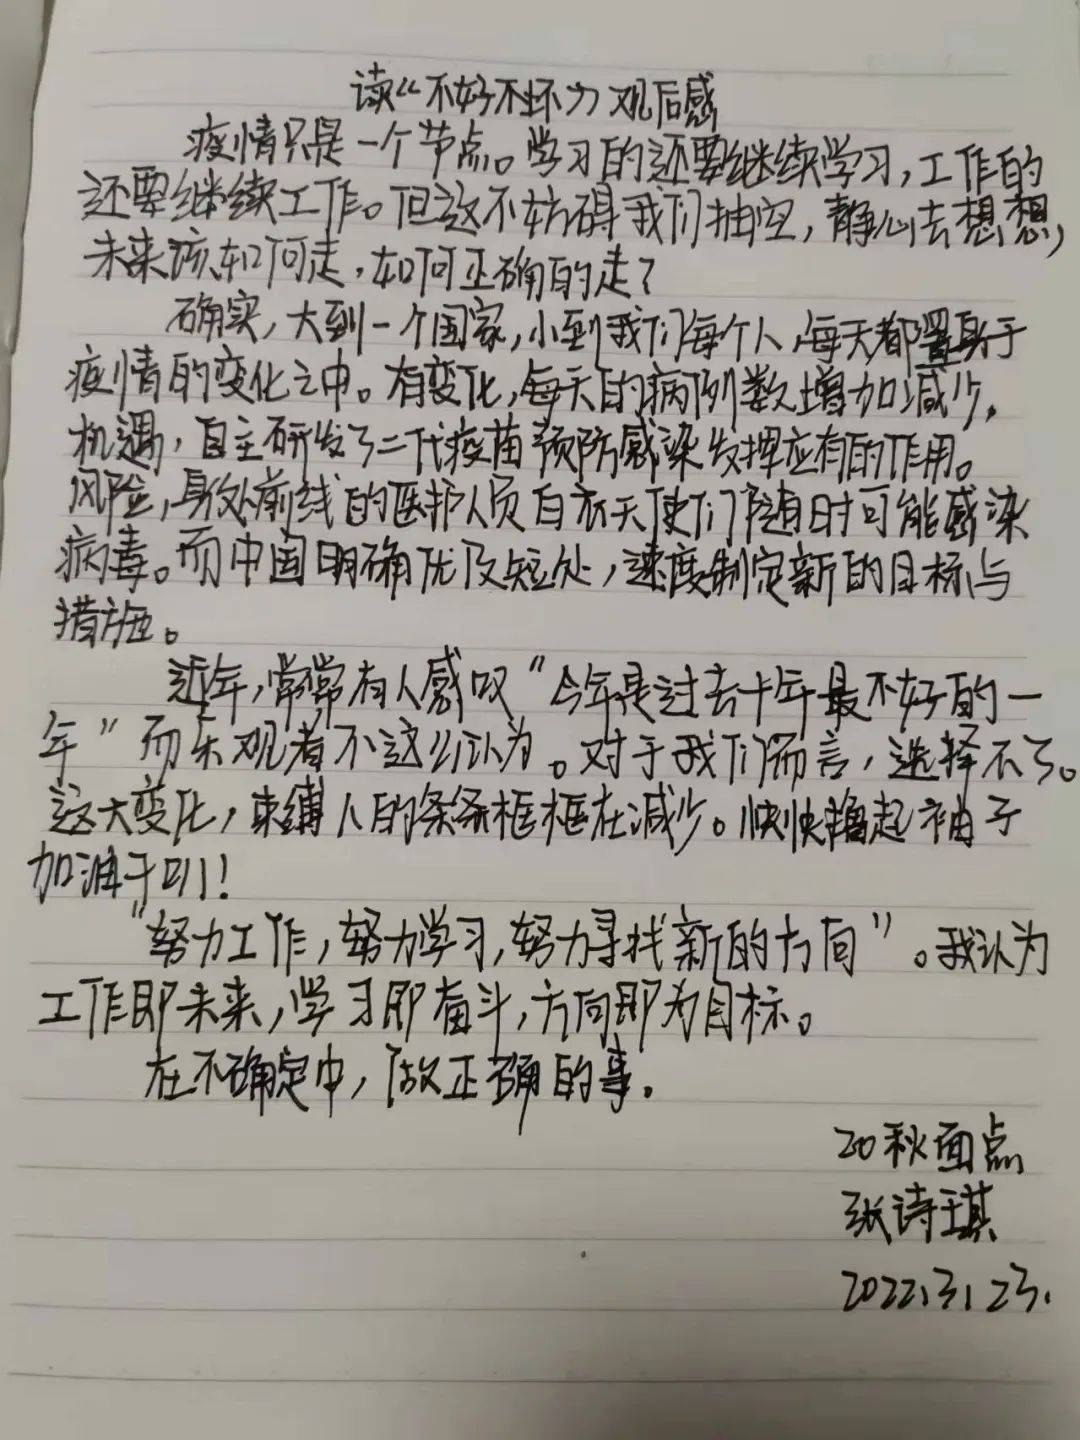 读“不好不坏”观后感
疫情只是一个节点。学习的还要继续学习,工作的
还要继续工作。但这不妨碍我们抽空,静心去想想,
未来该如何走,如何正确的走?
确实,大到一个国家,小到我们每个人,每天都置身于
疫情的变化之中。有变化,每天的病例数增加减少。
机遇,自主研发了二代疫苗预防感染发挥应有的作用。
风险,身处前线的医护人员白衣天使们随时可能感染
病毒。而中国明确优及短处,速度制定新的目标与
措施。
近年,常常有人感叹“今年是过去十年最不好的一
年”而乐观者不这么认为。对于我们而言,选择不了。
这大变化,束缚人的条条框框在减少。快快撸起袖子
加油干叭!
“努力工作,努力学习,努力寻找新的方向”。我认为
工作即未来,学习即奋斗,方向即为目标。
在不确定中,做正确的事。
20秋面点
张诗琪
2022.3.23.